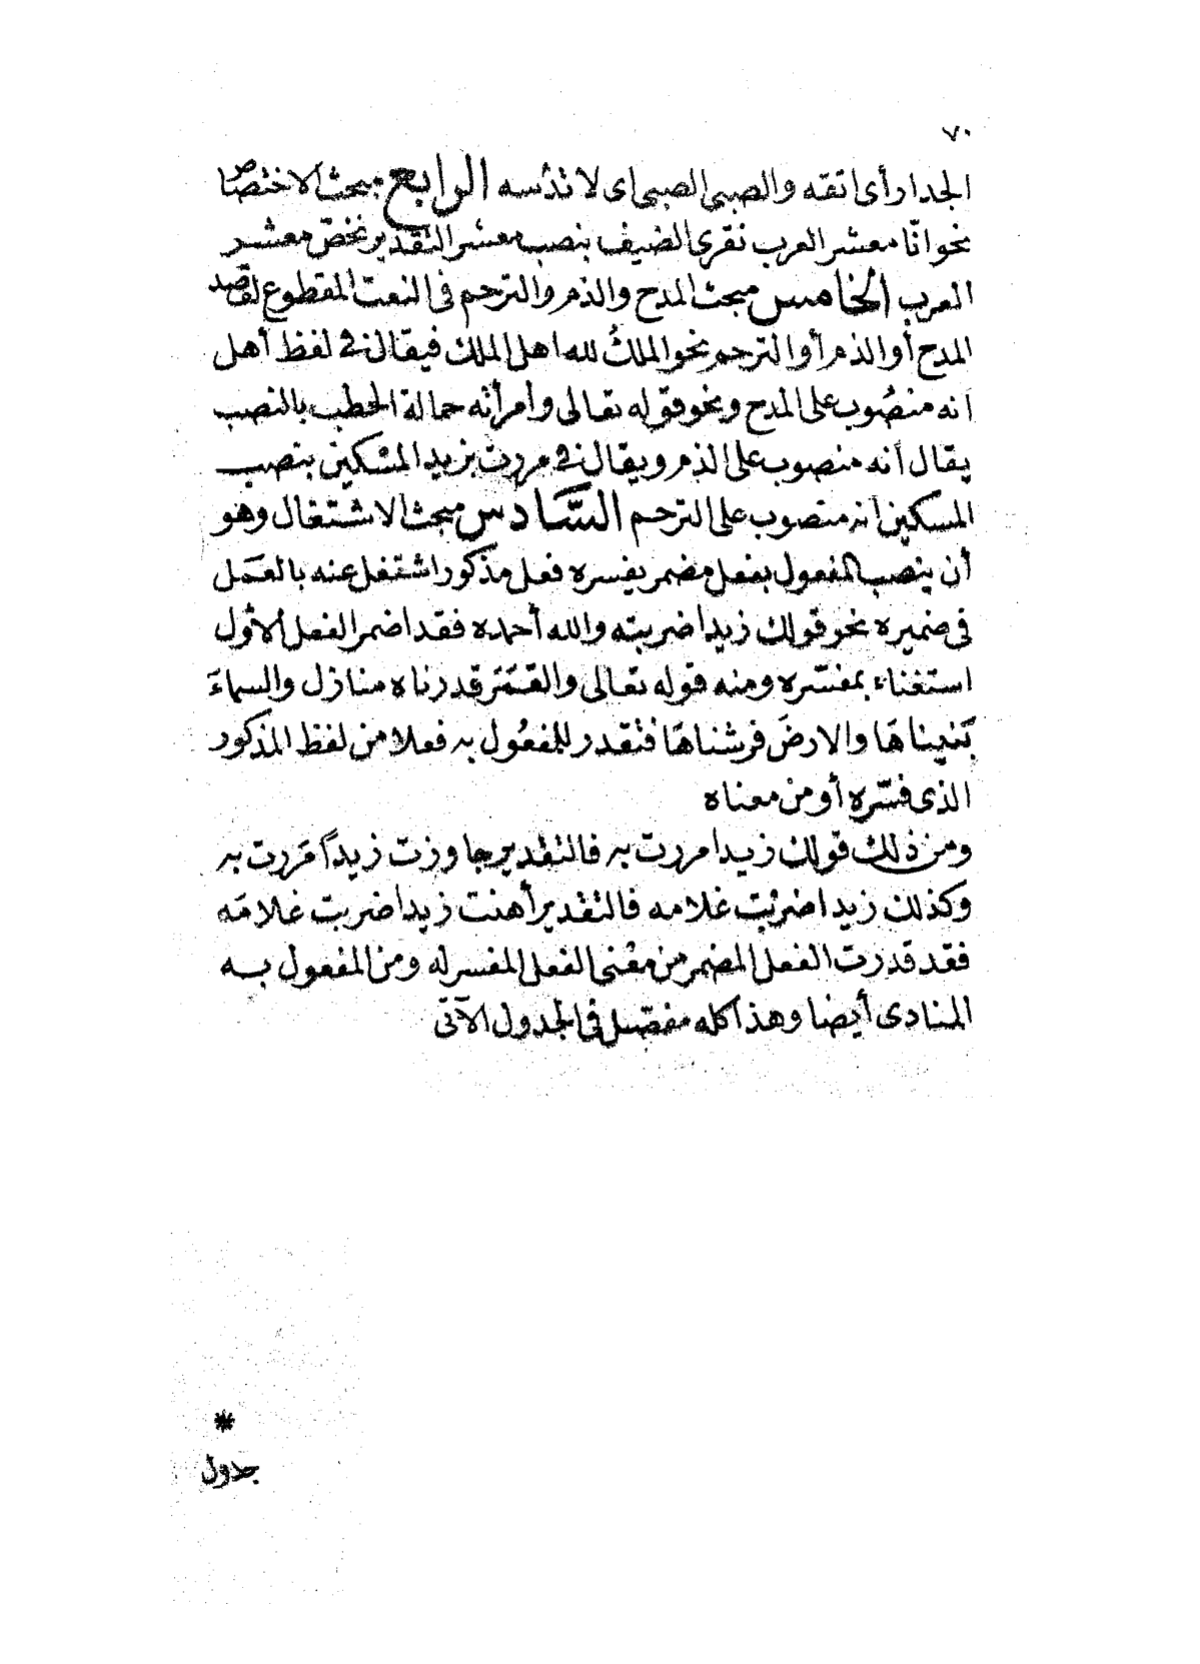 ٧٠
الجدار أى اتقه والصبى الصبى اى لا تدُسه الرابع مبحث الاختصاص
نحو انّا معشر العرب نقرى الضيف بنصب معشر التقدير نخصّ معشر
العرب الخامس مبحث المدح والذم والترحم فى النعت المقطوع لقصد
المدح أو الذم أو الترحم نحو الملكُ لله اهل الملك فيقال فى لفظ أهل
انه منصُوب على المدح ونحو قوله تعالى وامرأته حمالة الحطب بالنصب
يقال أنه منصوب على الذم ويقال فى مررت بزيد المسكين بنصب
المسكين انه منصوب على الترحم السَّادس مبحث الاشتغال وهو
أن ينصب المفعول بفعل مضمر يفسره فعل مذكور اشتغل عنه بالعمَل
فى ضميره نحو قولك زيدا ضربته والله أحمده فقد اضمر الفعل الأول
استغناء بمفسّره ومنه قوله تعالى والقمَرَ قدرناه منازل والسماءَ
بَنيناهَا والارضَ فرشناهَا فتقدر للمفعُول به فعلا من لفظ المذكور
الذى فسّره أو من معناه
ومن ذلك قولك زيدا مررت به فالتقدير جاوزت زيدًا مَررت به
وكذلك زيدا ضربْت غلامه فالتقدير أهنت زيدا ضربت غلامَه
فقد قدرت الفعل المضمر من مَعْنى الفعل المفسر له ومن المفعول به
المنادى أيضا وهذا كله مفصّل فى الجدول الآتى
*
جدول